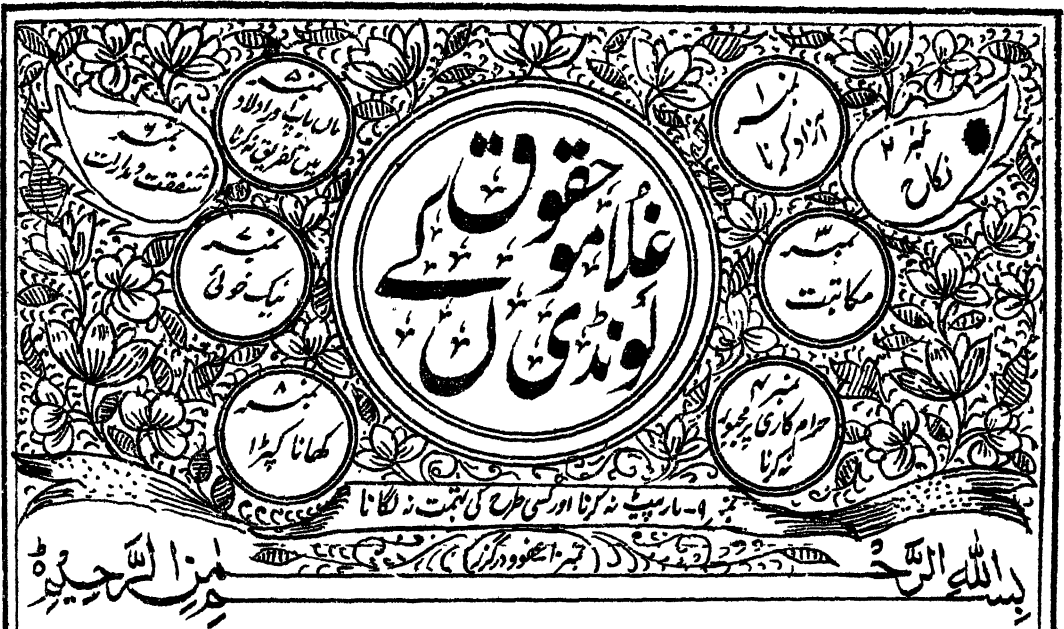 لونڈی غلاموں کے حقوق
نمبر ۱
آزاد کرنا
نمبر ۲
نکاح
نمبر ۳
مکاتبت
نمبر ۴
حرام کاری پر مجبور
نہ کرنا
نمبر ۵
ماں باپ اور اولاد
میں تفریق نہ کرنا
نمبر ۶
شفقت و مدارات
نمبر ۷
نیک خوئی
نمبر ۸
کھانا کپڑا
نمبر ۹ - مارپیٹ نہ کرنا اور کسی طرح کی تہمت نہ لگانا
نمبر ۱۰ عفو و درگزر
بِسْمِ اللّٰہِ الرَّحْمٰنِ الرَّحِیْمِ